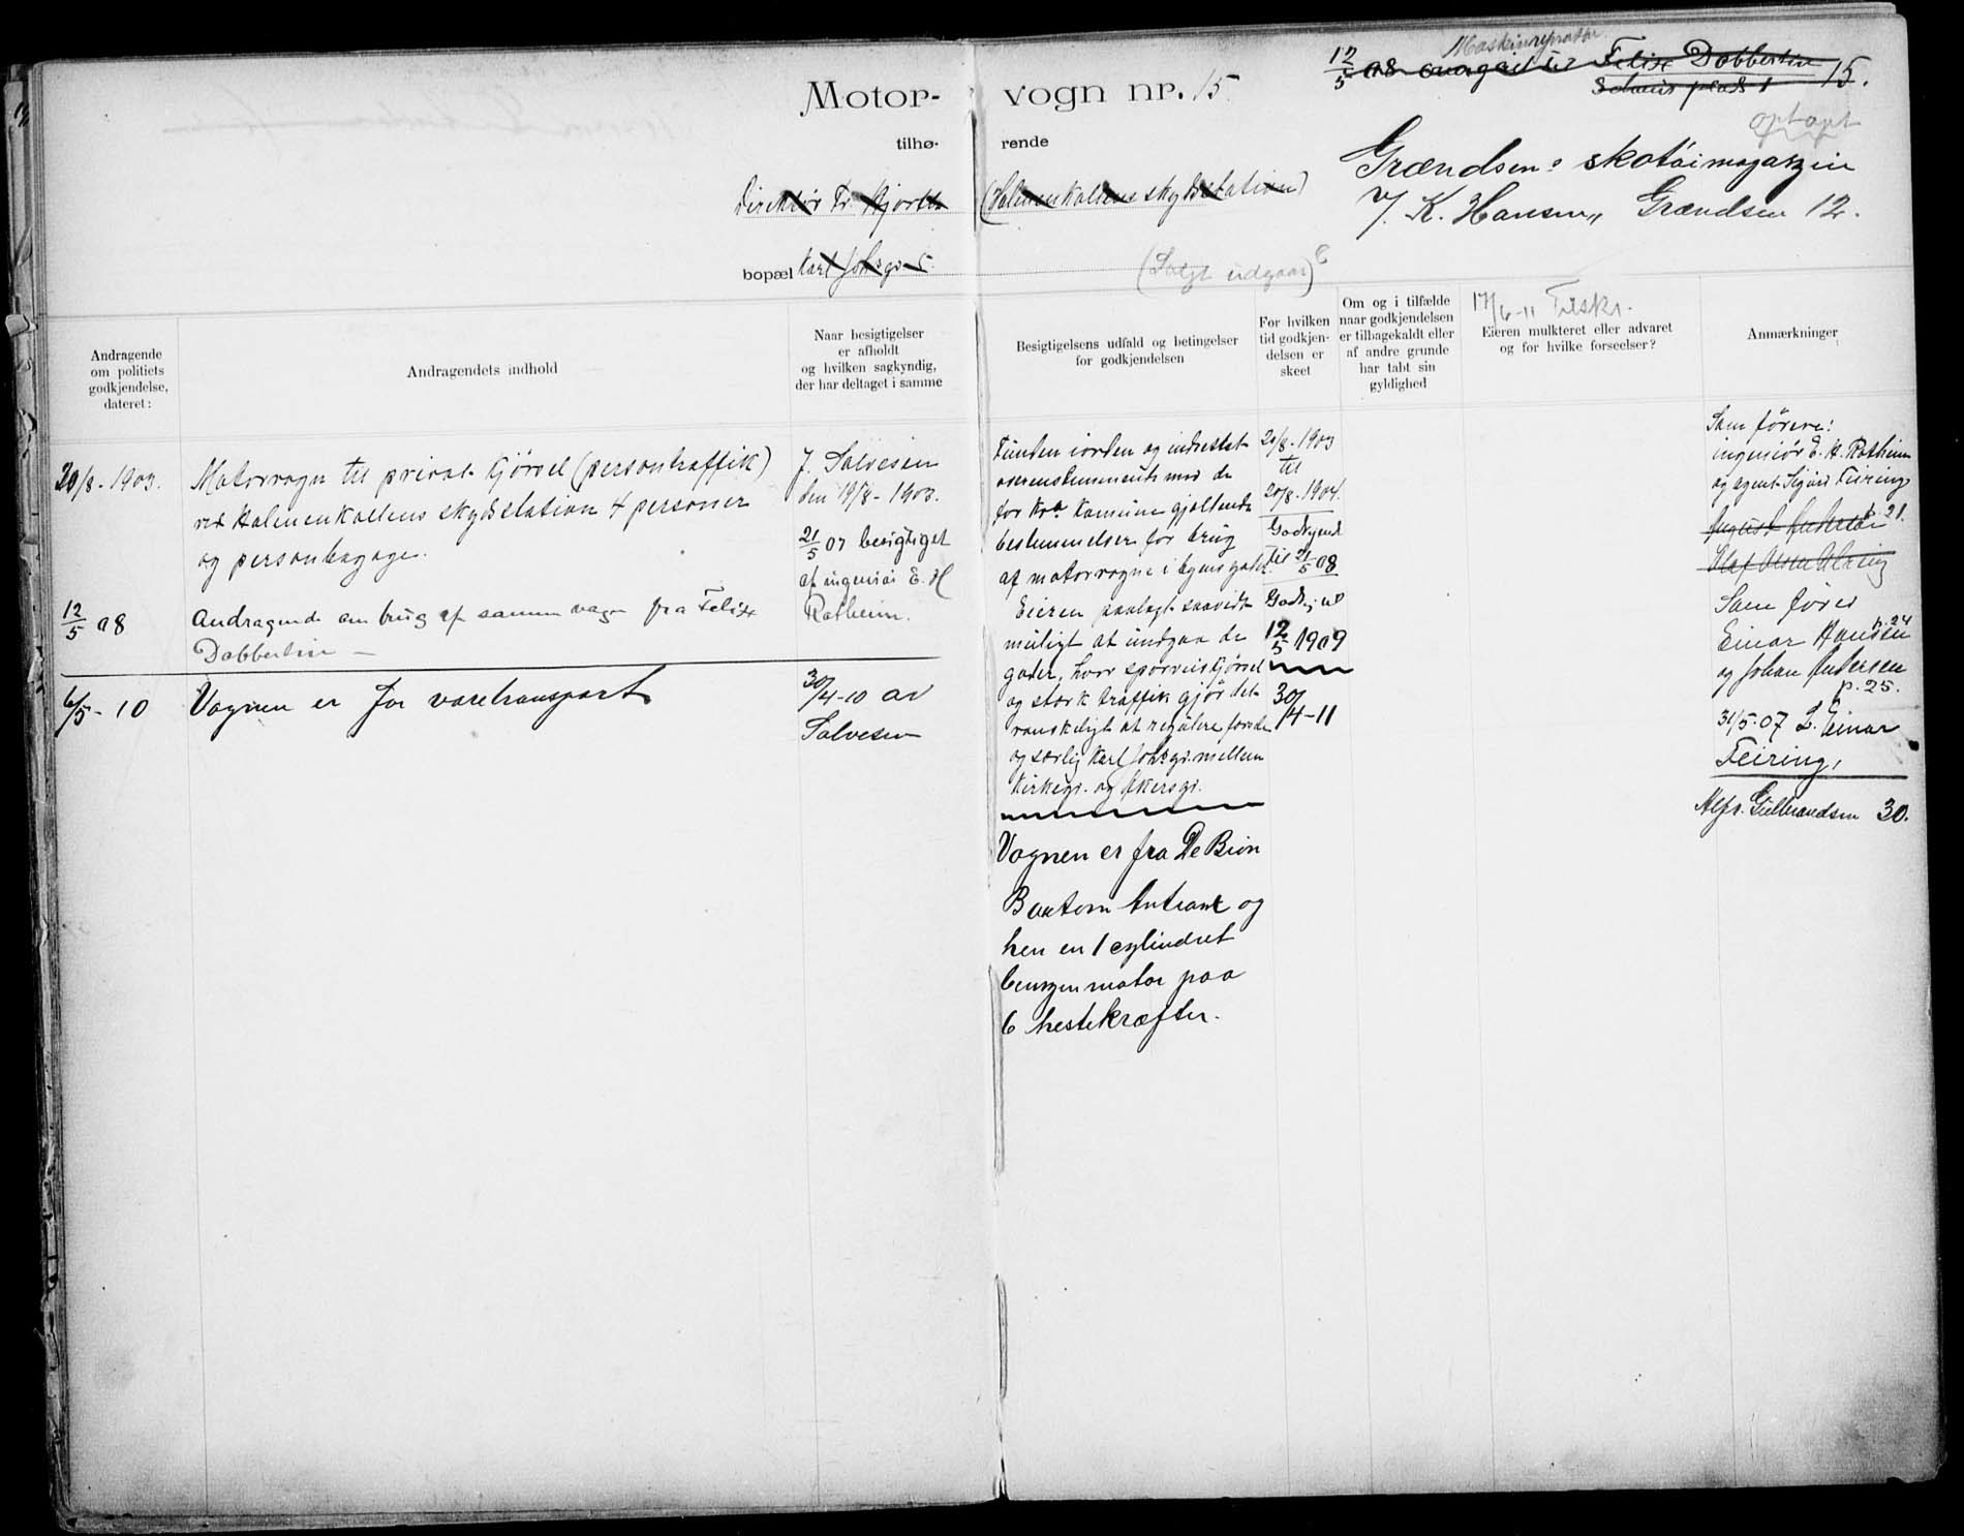 Motor- vogn nr. 15
tilhø- rende
Direktør Fr. Hjorth (Holmenkollens skydsstation)
bopæl Karl Johsgd 5.
(Solgt udgaar)
12/5 08 overgaaet til Maskinreparatør Felix Dobbertin
Schous plads 1
15.
optapt
Grændsens skotøimagazin
J. K. Hansen, Grændsen 12.
17/6-11 Tilskr.
Andragende
om politiets
godkjendelse,
dateret:
Andragendets indhold
Naar besigtigelser
er afholdt
og hvilken sagkyndig,
der har deltaget i samme
Besigtigelsens udfald og betingelser
for godkjendelsen
For hvilken
tid godkjen-
delsen er
skeet
Om og i tilfælde
naar godkjendelsen
er tilbagekaldt eller
af andre grunde
har tabt sin
gyldighed
Eieren mulkteret eller advaret
og for hvilke forseelser?
Anmærkninger
20/8-1903.
Motorvogn til privat kjørsel (persontraffik)
ved Holmenkollens skydsstation 4 personer
og personbagage.
12/5 08
Andragende om brug af samme vogn fra Felix
Dobbertin —
6/5-10
Vognen er for varetransport
J. Salvesen
den 19/8-1903.
21/5 07 besigtiget
af ingeniør E. H
Rotheim.
30/4-10 av
Salvesen
Funden iorden og indrettet
overensstemmende med de
for Kra Kommune gjældende
bestemmelser for brug
af motorvogne i byens gader.
Eieren paalagt saavidt
muligt at undgaa de
gader, hvor sporveiskjørsel
og sterk traffik gjør det
vanskeligt at regulere farten
og særlig Karl Johsgd. mellem
Kirkegd. og Akersgd.
Vognen er fra De Dion
Bouton og
har en 1 cylindret
benzinmotor paa
6 hestekræfter.
20/8-1903
til
20/8-1904.
Godkjendt
til 21/5 08
Godkj. til
12/5 1909
30/4-11
Som førere:
ingeniør E. H. Rotheim
og agent Sigurd Feiring
p. 21.
August Andersen
Olaf Olsen
Som fører
Einar Hansen p. 24
og Johan Andersen
p. 25.
31/5.07 L. Einar
Feiring,
Alfr. Gulbrandsen 30.